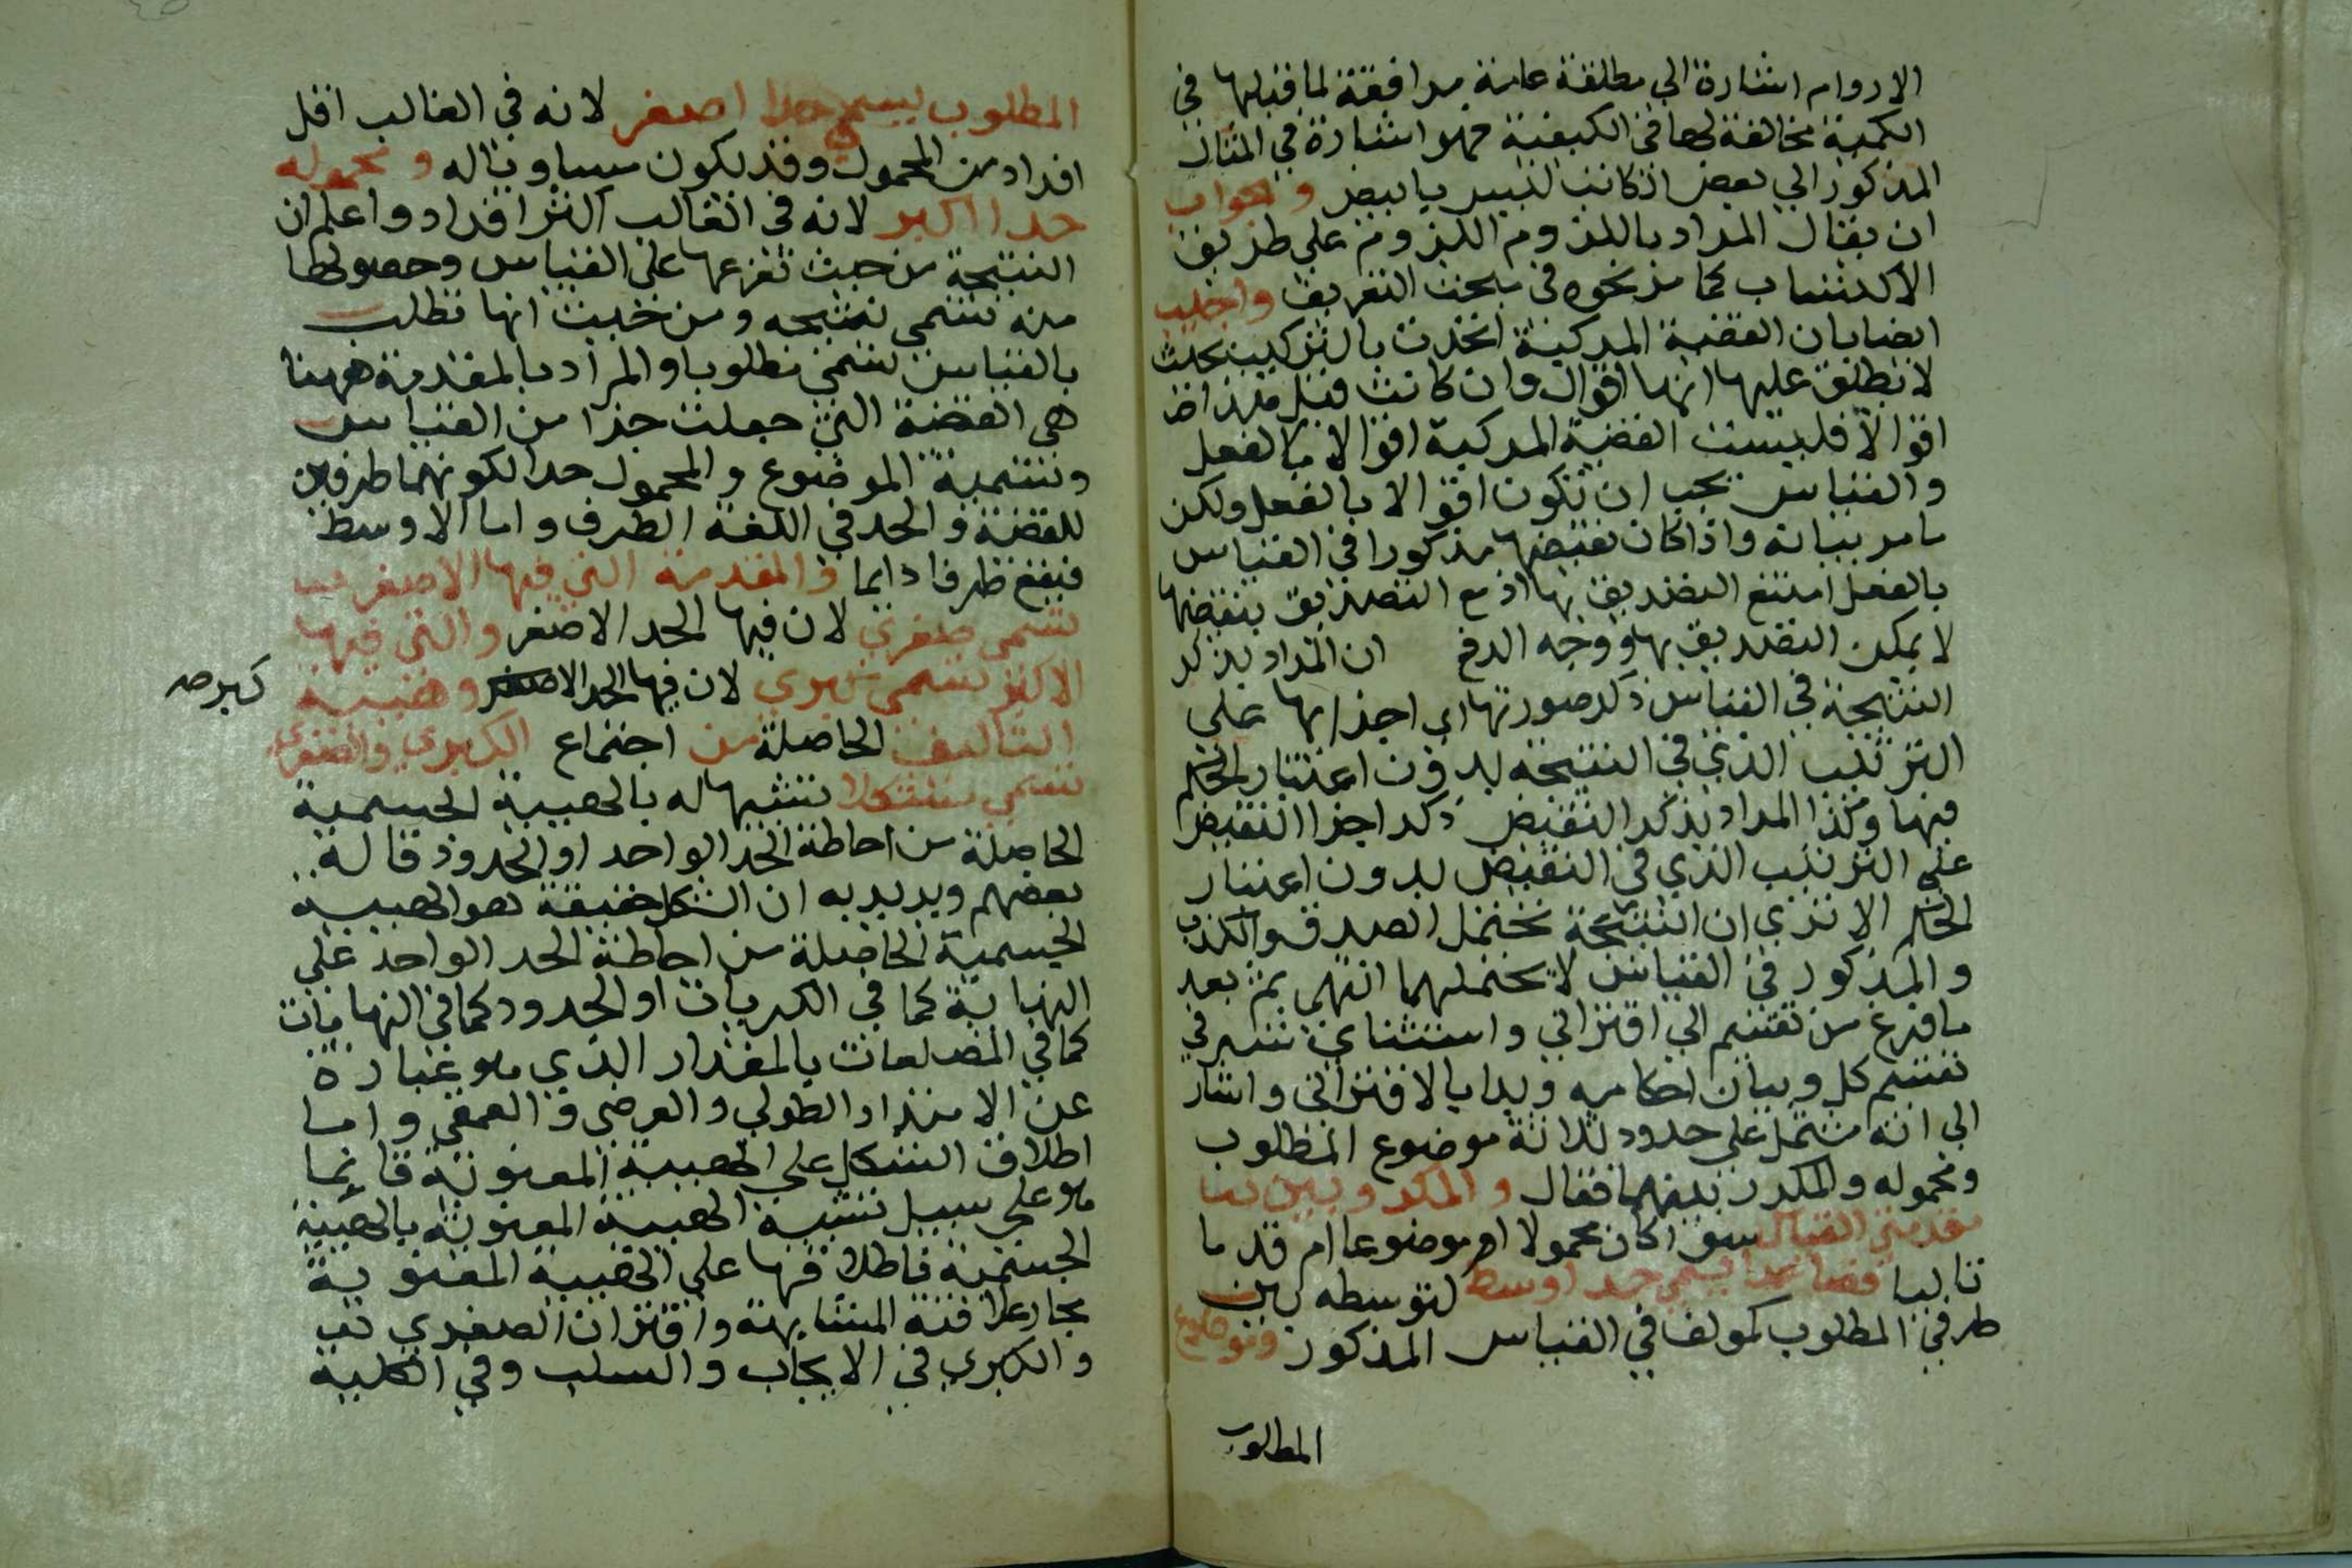 الادوام اشارة الي مطلقة عامة موافقة لما قبلها في
الكمية مخالفة لها في الكيفية فهو اشارة في المثال
المذكور الي بعض اذ كاتب ليس بابيض والجواب
ان يقال المراد باللزوم اللزوم علي طريق
الاكتساب كما مر نحوه في مبحث التعريف واجيب
ايضا بان القضية المركبة اتحدت بالتركيب بحيث
لا يطلق عليها انها اقوال وان كانت قبل
اقوالا فليست القضية المركبة اقوالا بالفعل
والقياس يجب ان تكون اقوالا بالفعل ولكن
ما مر بيانه واذا كان نقيضها مذكورا في القياس
بالفعل امتنع التصديق بها اذ مع التصديق بنقيضها
لا يمكن التصديق بها ووجه الدفع ان المراد بذكر
النتيجة في القياس ذكر صورتها اي اجزاءها علي
الترتيب الذي في النتيجة بدون اعتبار الحكم
فيها وكذا المراد بذكر النقيض ذكر اجزا النقيض
علي الترتيب الذي في النقيض بدون اعتبار
الحكم الا تري ان النتيجة تحتمل الصدق والكذب
والمذكور في القياس لا يحتملهما انتهي ثم بعد
ما فرغ من تقسيم الي اقتراني واستثناي شرع في
تقسيم كل وبيان احكامه وبدا بالاقتراني واشار
الي انه مشتمل علي حدود ثلاثة موضوع المطلوب
ومحموله والمكرر بينهما فقال والمكرر بين
مقدمتي القياس سوا كان محمولا او موضوعا ام قدما
تاليا فصاعدا يسمي حد اوسط لتوسطه بين
طرفي المطلوب كمولف في القياس المذكور وموضوع
المطلوب
المطلوب يسمي حدا اصغر لانه في الغالب اقل
افراد من المحمول وقد يكون مساويا له ومحموله
حدا اكبر لانه في الغالب اكثر افراد واعلم ان
النتيجة من حيث تفرعها علي القياس وحصولها
منه تسمي نتيجه ومن حيث انها تطلب
بالقياس تسمي مطلوبا والمراد بالمقدمة ههنا
هي القضية التي جعلت جزا من القياس
وتسمية الموضوع والمحمول حدا لكونهما طرفين
للقضية والحد في اللغة الطرف واما الاوسط
فيقع طرفا دايما والمقدمة التي فيها الاصغر
تسمي صغري لان فيها الحد الاصغر والتي فيها
الاكبر تسمي كبري لان فيها الحد الاصغر وهيية
كبر صه
التاليف الحاصلة من اجتماع الكبري والصغري
تسمي شكلا تشبيها له بالهيية الجسمية
الحاصلة من احاطة الحد الواحد او الحدود قاله
بعضهم ويريد به ان الشكل حقيقة هو الهيية
الجسمية الحاصلة من احاطة الحد الواحد علي
النهاية كما في الكريات او الحدود كما في النهايات
كما في المضلعات بالمقدار الذي هو عبارة
عن الامتداد الطولي والعرضي والعمقي واما
اطلاق الشكل علي الهيية المعنوية فانما
هو علي سبيل تشبيه الهيية المعنوية بالهيية
الجسمية فاطلاقها علي الهيية المعنوية
مجاز علاقته المشابهة واقتران الصغري
والكبري في الايجاب والسلب وفي الكلية